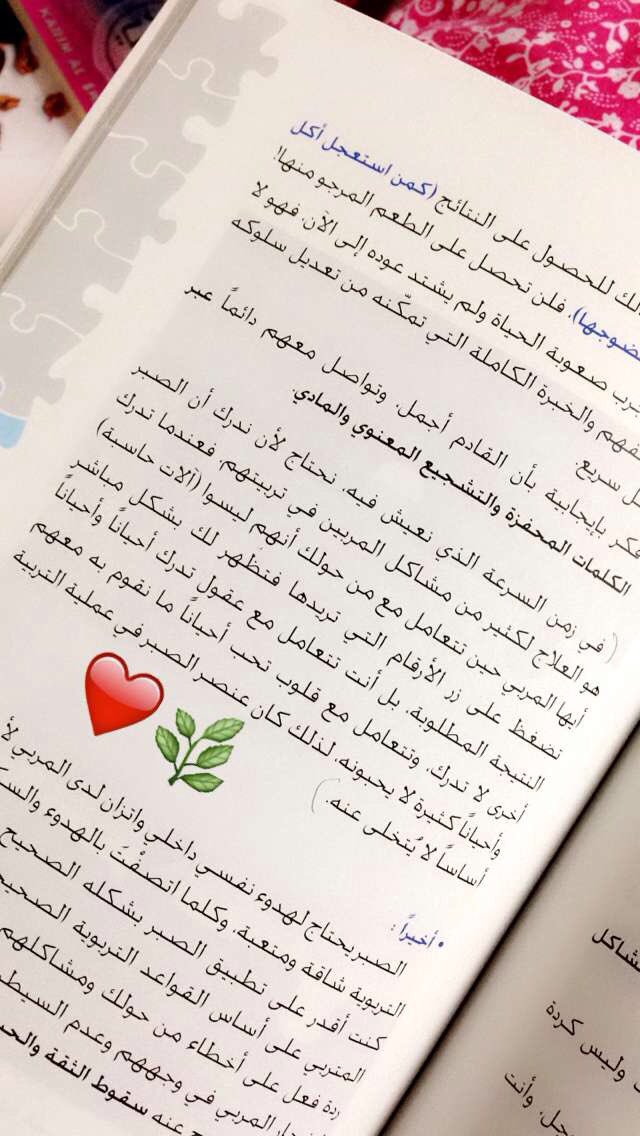 KARIM AL
للحصول على النتائج (كمن استعجل أكل
فلن تحصل على الطعم المرجو منها!
صعوبة الحياة ولم يشتد عوده إلى الآن، فهو لا
والخبرة الكاملة التي تمكّنه من تعديل سلوكه
سريع
بإيجابية بأن القادم أجمل، وتواصل معهم دائماً عبر
الكلمات المحفزة والتشجيع المعنوي والمادي.
في زمن السرعة الذي نعيش فيه، نحتاج لأن ندرك أن الصبر
هو العلاج لكثير من مشاكل المربين في تربيتهم، فعندما تدرك
أيها المربي حين تتعامل مع من حولك أنهم ليسوا (آلات حاسبة)
تضغط على زر الأرقام التي تريدها فتظهر لك بشكل مباشر
النتيجة المطلوبة، بل أنت تتعامل مع عقول تدرك أحياناً وأحياناً
أخرى لا تدرك، وتتعامل مع قلوب تحب أحياناً ما نقوم به معهم
وأحياناً كثيرة لا يحبونه، لذلك كان عنصر الصبر في عملية التربية
أساساً لا يُتخلى عنه.
• أخيراً:
الصبر يحتاج لهدوء نفسي داخلي واتزان لدى المربي
التربوية شاقة ومتعبة، وكلما اتصفْتَ بالهدوء
كنت أقدر على تطبيق الصبر بشكله الصحيح
المتربي على أساس القواعد التربوية
ردة فعل على أخطاء من حولك ومشاكلهم
المربي في وجههم وعدم
عنه سقوط الثقة
وليس كردة
وأنت